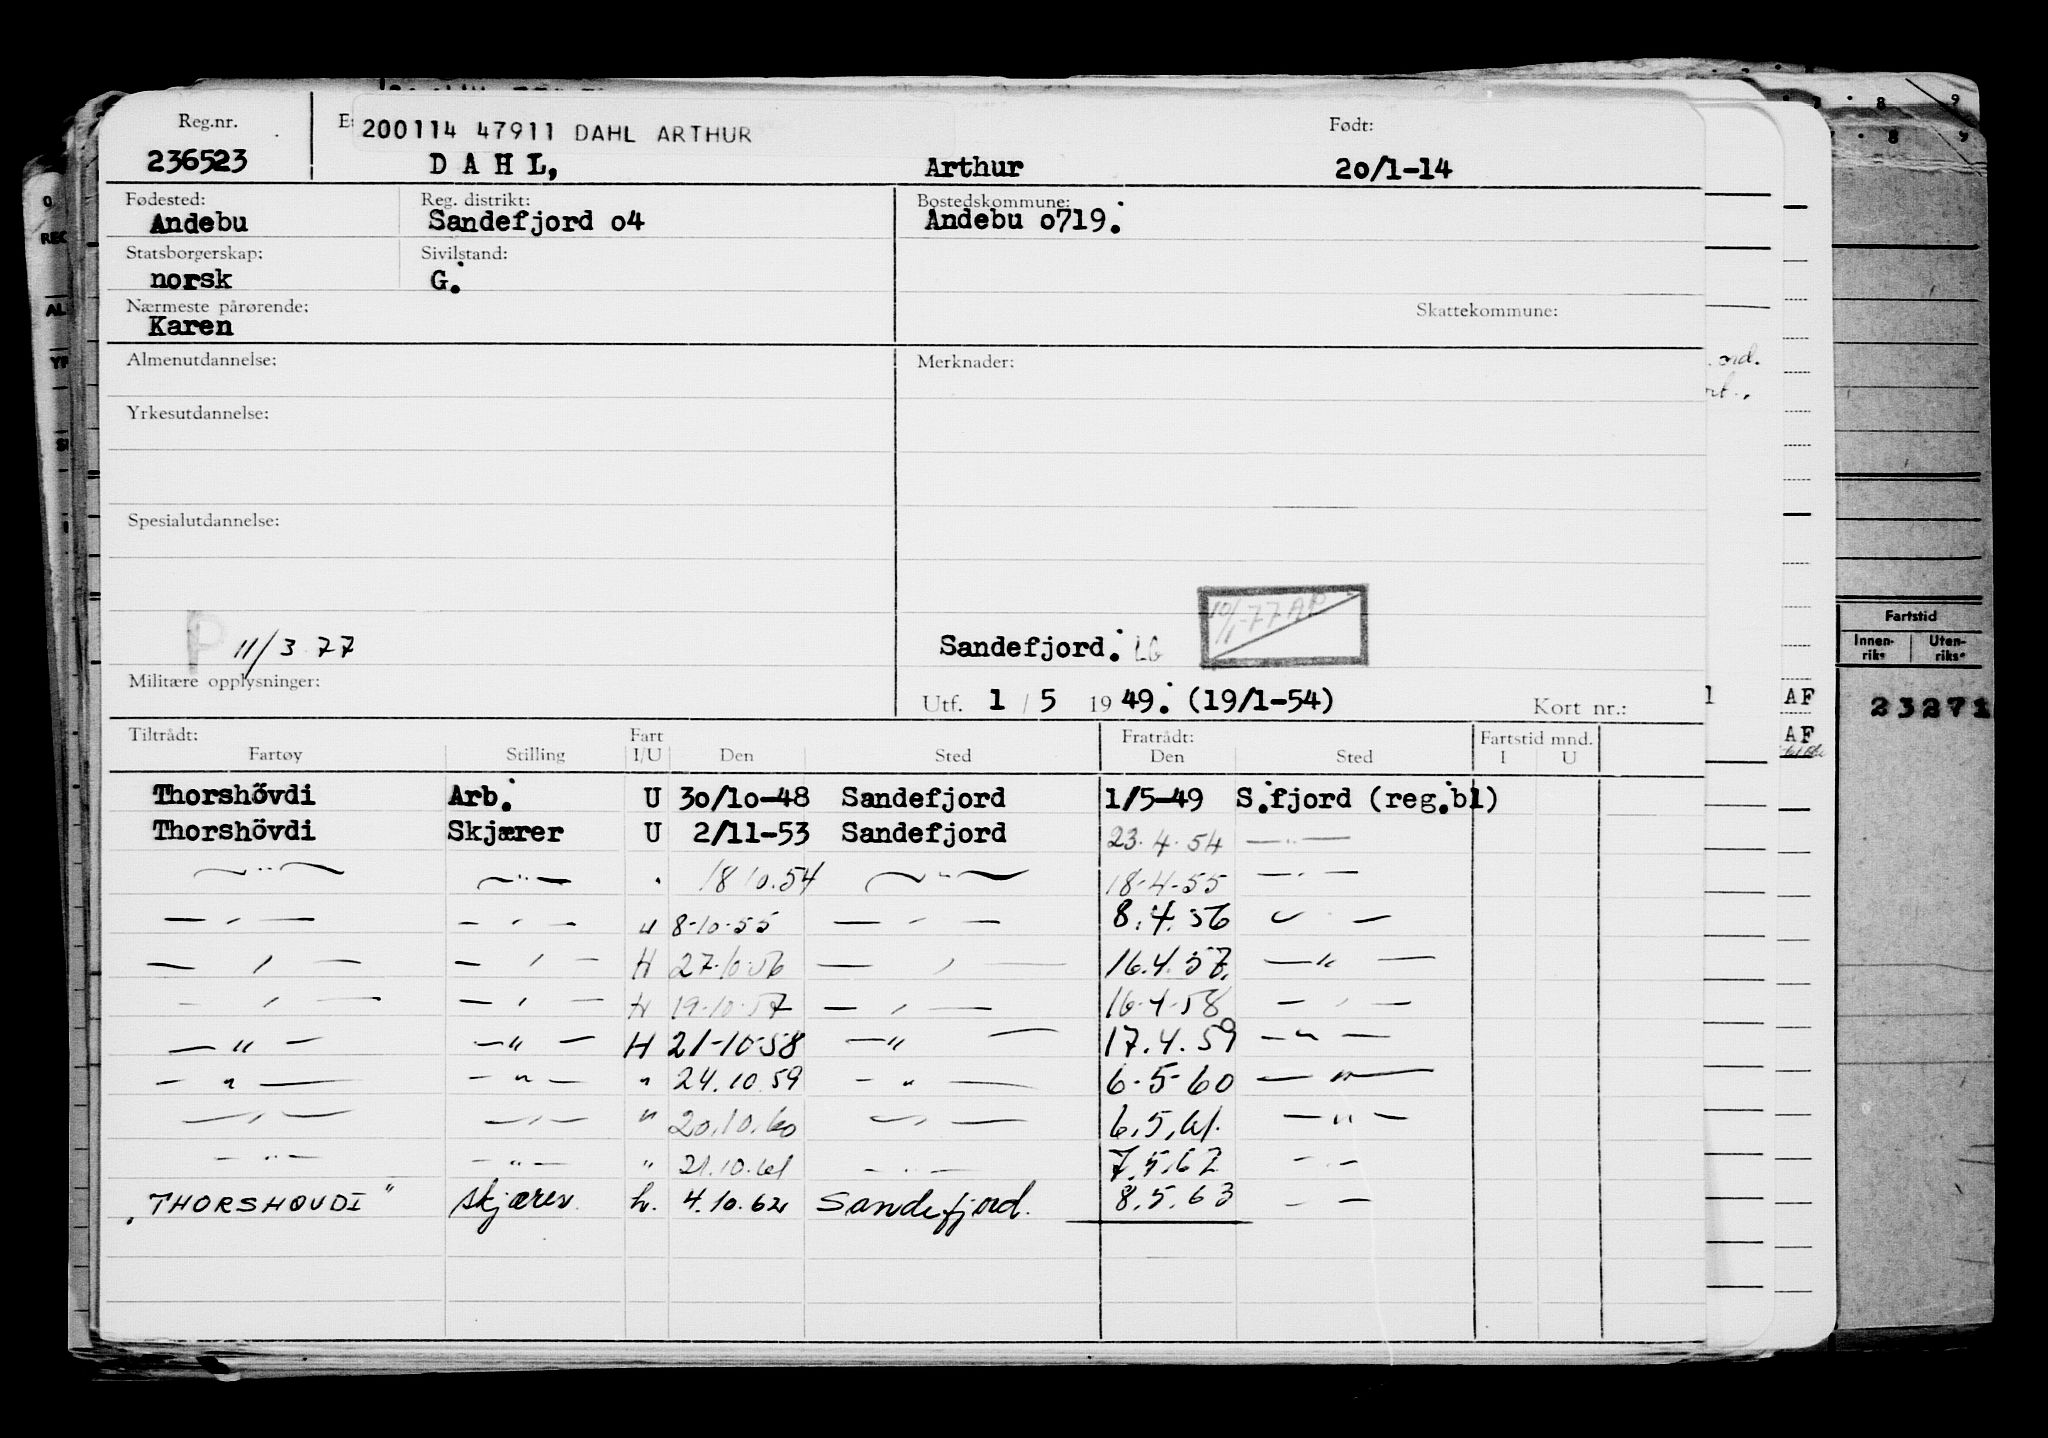 Reg.nr. 200114 47911 DAHL ARTHUR Født:
236523 D A H L, Arthur 20/1-14
Fødested: Reg. distrikt: Bostedskommune:
Andebu Sandefjord o4 Andebu o719.
Statsborgerskap: Sivilstand:
norsk G.
Nærmeste pårørende: Skattekommune:
Karen
Almenutdannelse: Merknader:
Yrkesutdannelse:
Spesialutdannelse:
P 11/3 77 Sandefjord. LG
Militære opplysninger:
Utf. 1 / 5 19 49. (19/1-54) Kort nr.:
Tiltrådt: Fart Fratrådt: Fartstid mnd.
Fartøy Stilling I/U Den Sted Den Sted I U
Thorshövdi Arb. U 30/10-48 Sandefjord 1/5-49 S.fjord (reg.bl)
Thorshövdi Skjærer U 2/11-53 Sandefjord 23.4.54 —"—
—"— —"— " 18 10.54 —"— 18-4-55 —"—
—"— —"— u 8-10-55 —"— 8.4.56 —"—
—"— —"— H 27-10-56 —"— 16.4.57. —"—
—"— —"— H 19-10-57 —"— 16-4-58 —"—
—"— —"— H 21-10-58 —"— 17.4.59 —"—
—"— —"— " 24.10.59 —"— 6-5-60 —"—
—"— —"— " 20.10.60 —"— 6.5.61. —"—
—"— —"— " 21.10.61 —"— 7.5.62 —"—
"THORSHØVDI" Skjærer. h. 4.10.62 Sandefjord. 8.5.63 —"—
Fartstid
Innen-riks Uten-riks
AF
AF
23271